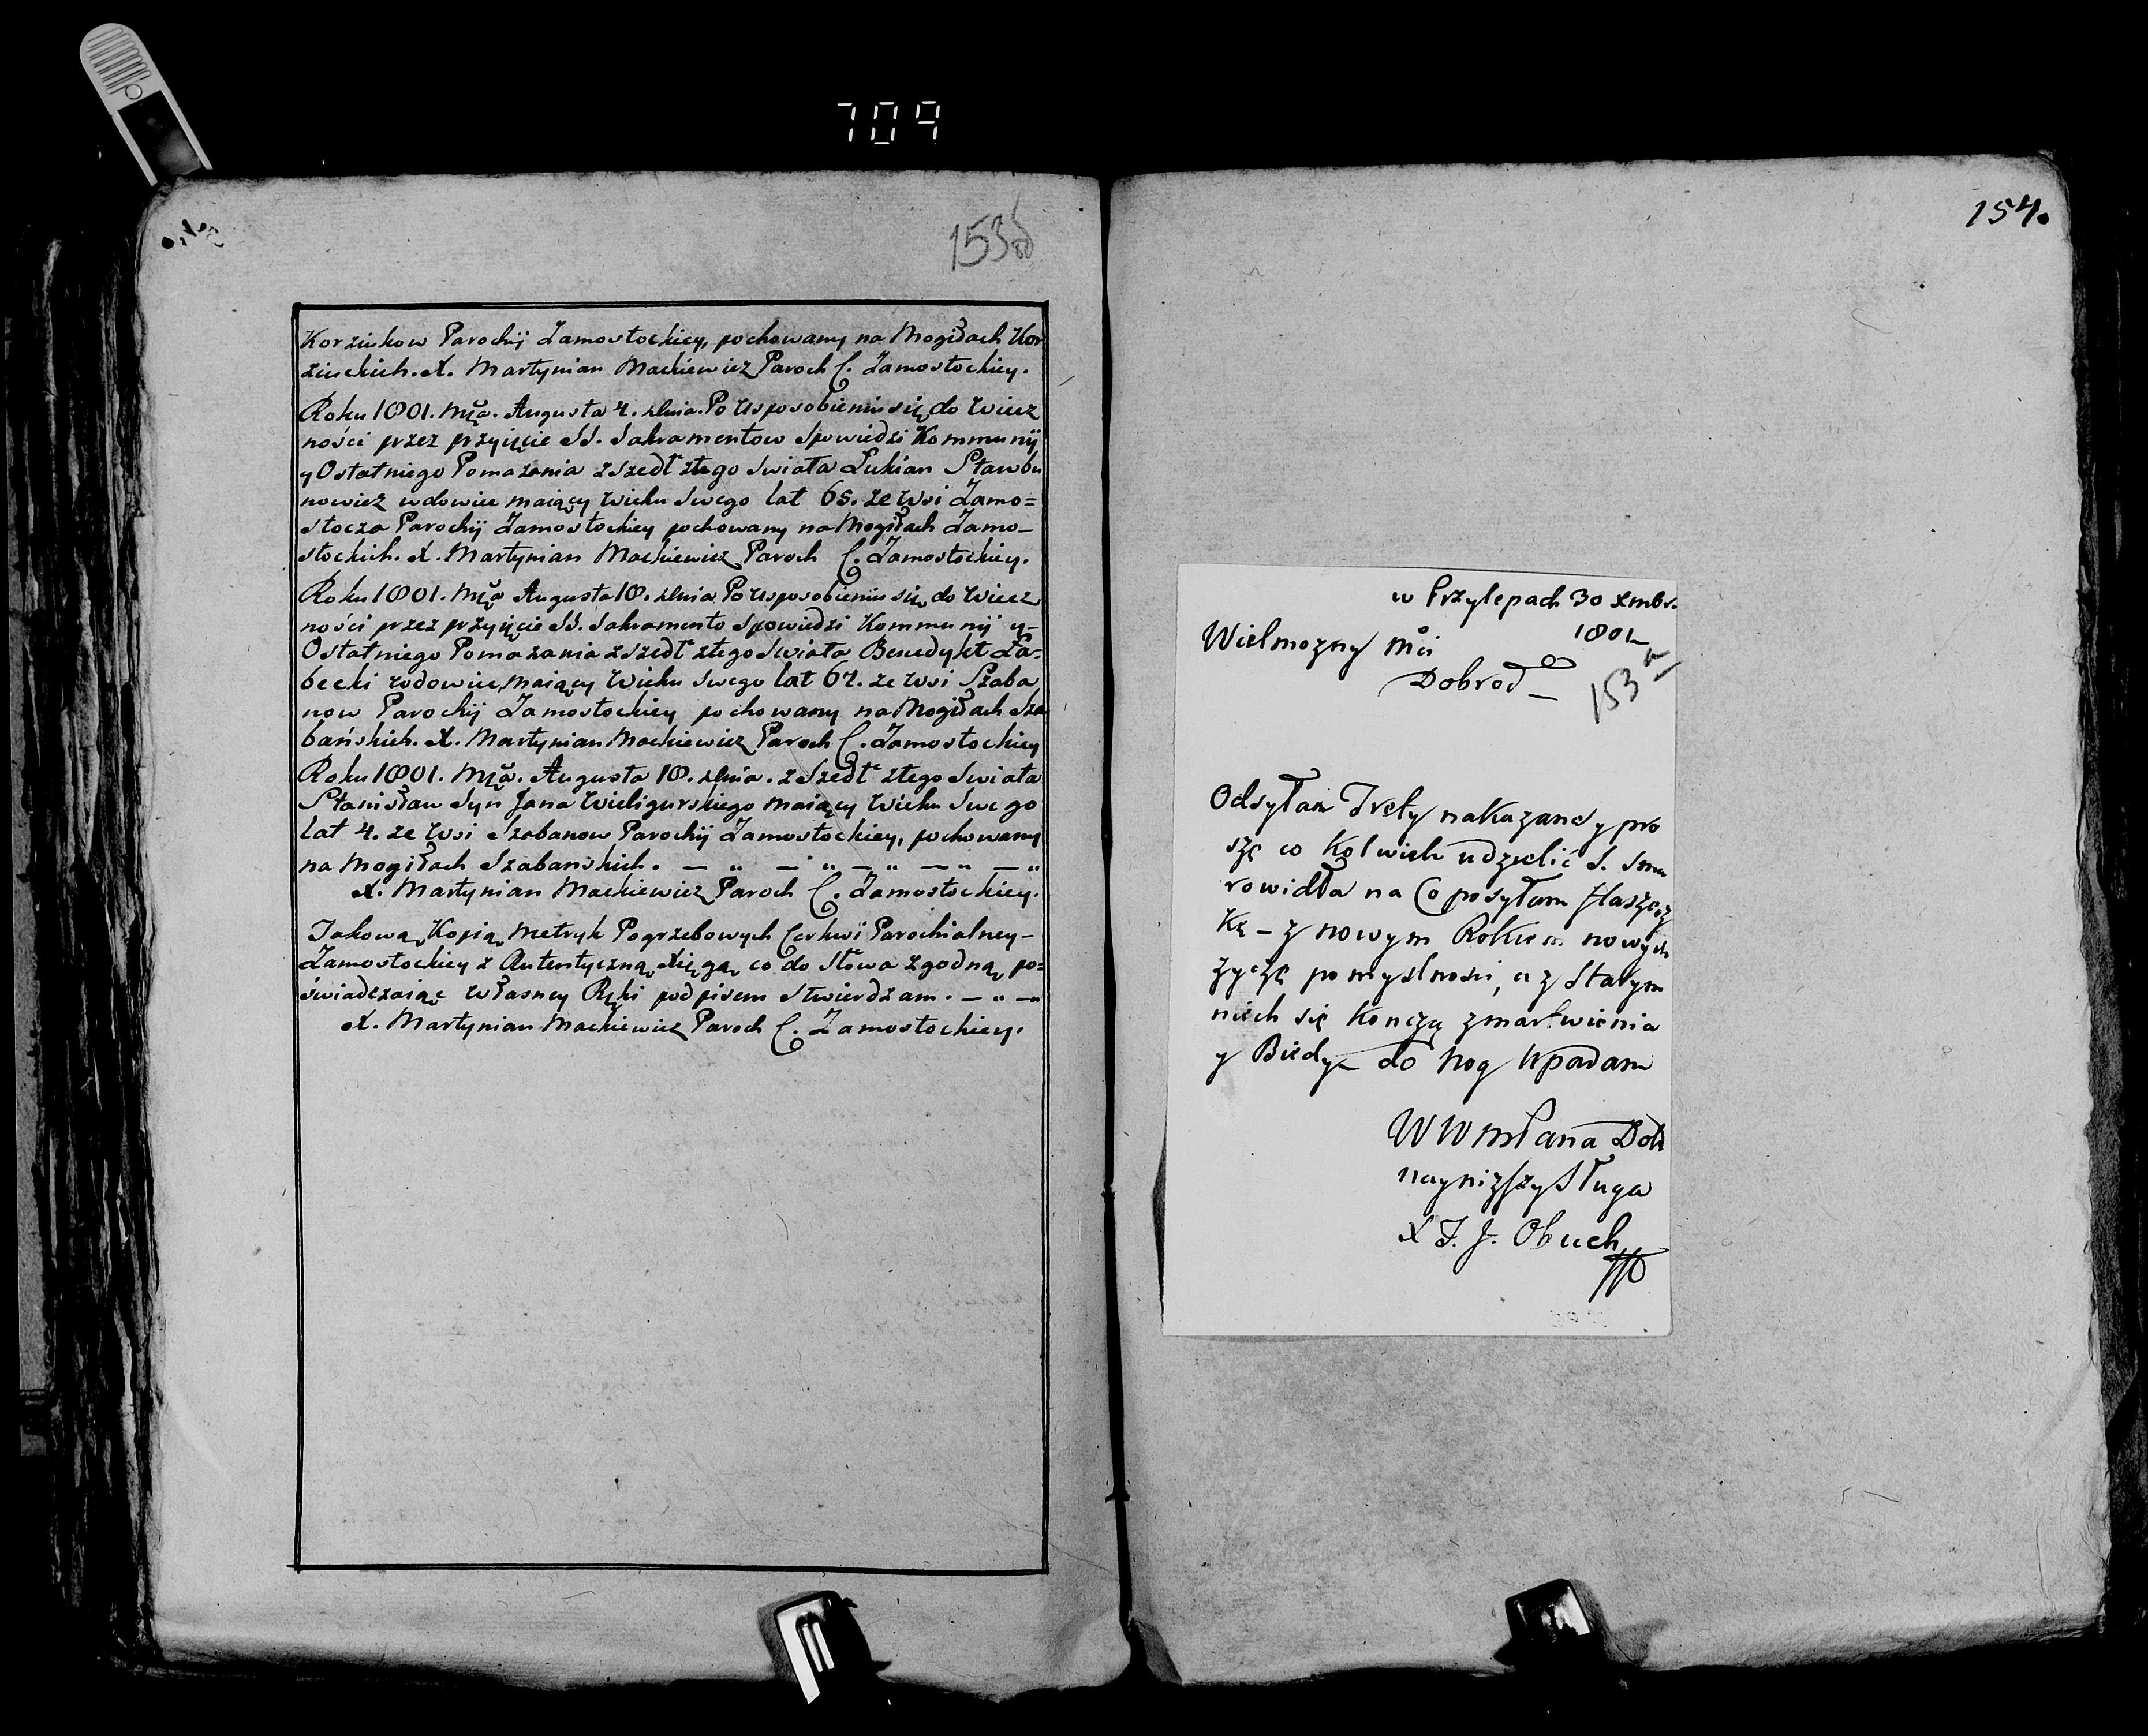 709
153 об
Korziukow Parochij Zamostockiey, pochowany na Mogiłach Kor
ziuckich. X. Martynian Mackiewicz Paroch C. Zamostockiey.
Roku 1801. Mca. Augusta 4. dnia. Po Usposobieniu się do Wiecz
ności przez przyięcie SS. Sakramentow Spowiedzi Kommunij
y Ostatniego Pomazania zszedł ztego Swiata Lukian
nowicz wdowiec maiący Wieku Swego lat 65. ze Wsi Zamo=
stocza Parochij Zamostockiey pochowany na Mogiłach Zamo-
stockich. X. Martynian Mackiewicz Paroch C. Zamostockiey.
Roku 1801. Mca Augusta 10. dnia Po Usposobieniu się do Wiecz
ności przez przyięcie SS. Sakramento Spowiedzi Kommunij y-
Ostatniego Pomazania zszedł ztego Swiata Benedykt Ła-
becki wdowiec, maiący Wieku Swego lat 67. ze Wsi Szaba
now Parochij Zamostockiey pochowany na Mogiłach Sza
bańskich. X. Martynian Mackiewicz Paroch C. Zamostockiey
Roku 1801. Mca. Augusta 10. dnia. zSzedł ztego Swiata
Stanisław Syn Jana Wieligurskiego maiący Wieku Swego
lat 4. ze Wsi Szabanow Parochij Zamostockiey, pochowany
na Mogiłach Szabańskich. — " — " — " — " — "
X. Martynian Mackiewicz Paroch C. Zamostockiey.
Takową Kopią Metryk Pogrzebowych Cerkwi Parochialney-
Zamostockiey z Autentyczną Xięgą co do Słowa zgodną po=
świadczaiąc własney Ręki podpisem Stwierdzam. — " — "
X. Martynian Mackiewicz Paroch C. Zamostockiey.
154.
w Przylepach 30 Xmbr.
1801
Wielmozny Mci
Dobrod
153 a
Odsyłam Trety nakazane y pro
szę co Kolwiek udzielić S. Sma
rowidła na Co posyłam flaszecz
Kę – z nowym Rokiem nowych
życzę pomyslnosci, a z Starym
niech się Konczą zmartwienia
y Biedy – do nog Upadam
WWMPana Dob
naynizszy Sługa
X J. J. Obuch